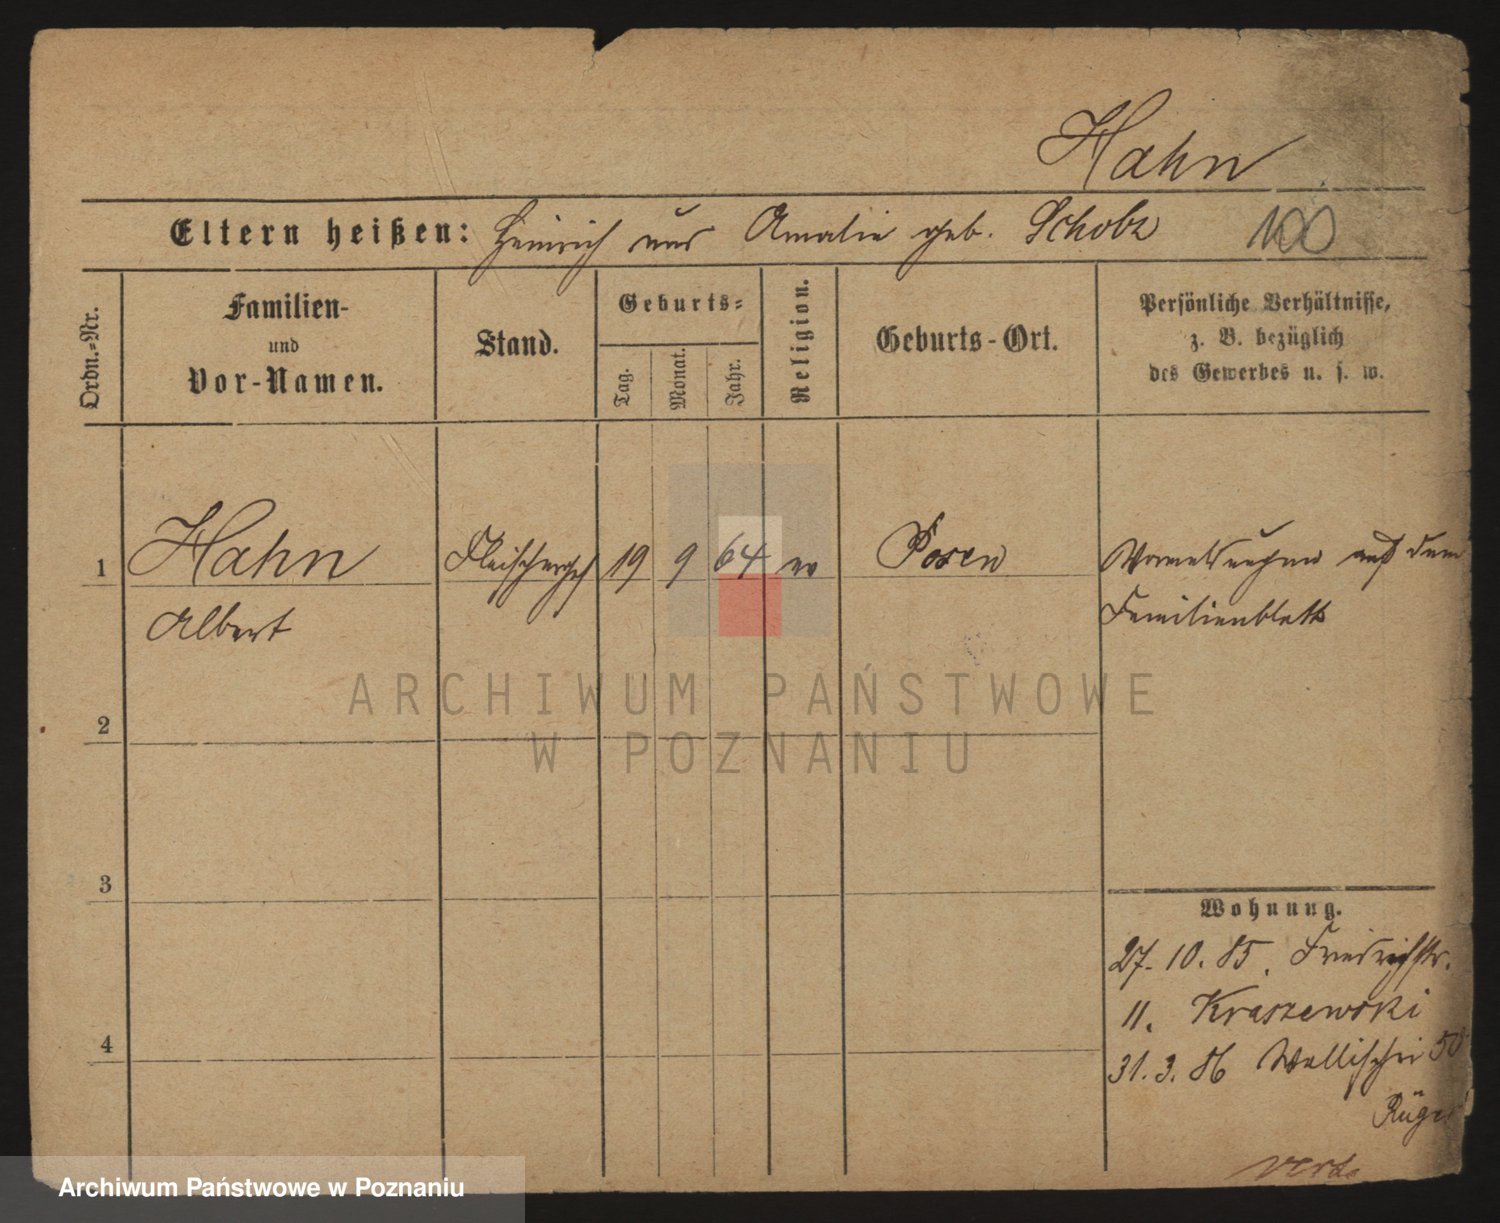 Hahn
Eltern heißen: Heinrich und Amalie geb. Scholz
100
Ordn.-Nr.
Familien-
und
Vor-Namen.
Stand.
Geburts-
Tag.
Monat.
Jahr.
Religion.
Geburts-Ort.
Persönliche Verhältnisse,
z. B. bezüglich
des Gewerbes u. s. w.
1
Hahn
Fleischerges
19
9
64
ev
Posen
auf dem
Albert
Familienblatt
2
3
4
Wohnung.
27. 10. 85. Friedrichstr.
11. Kraszewski
31. 3. 86 Wallischei 50
ARCHIWUM PAŃSTWOWE
W POZNANIU
Archiwum Państwowe w Poznaniu